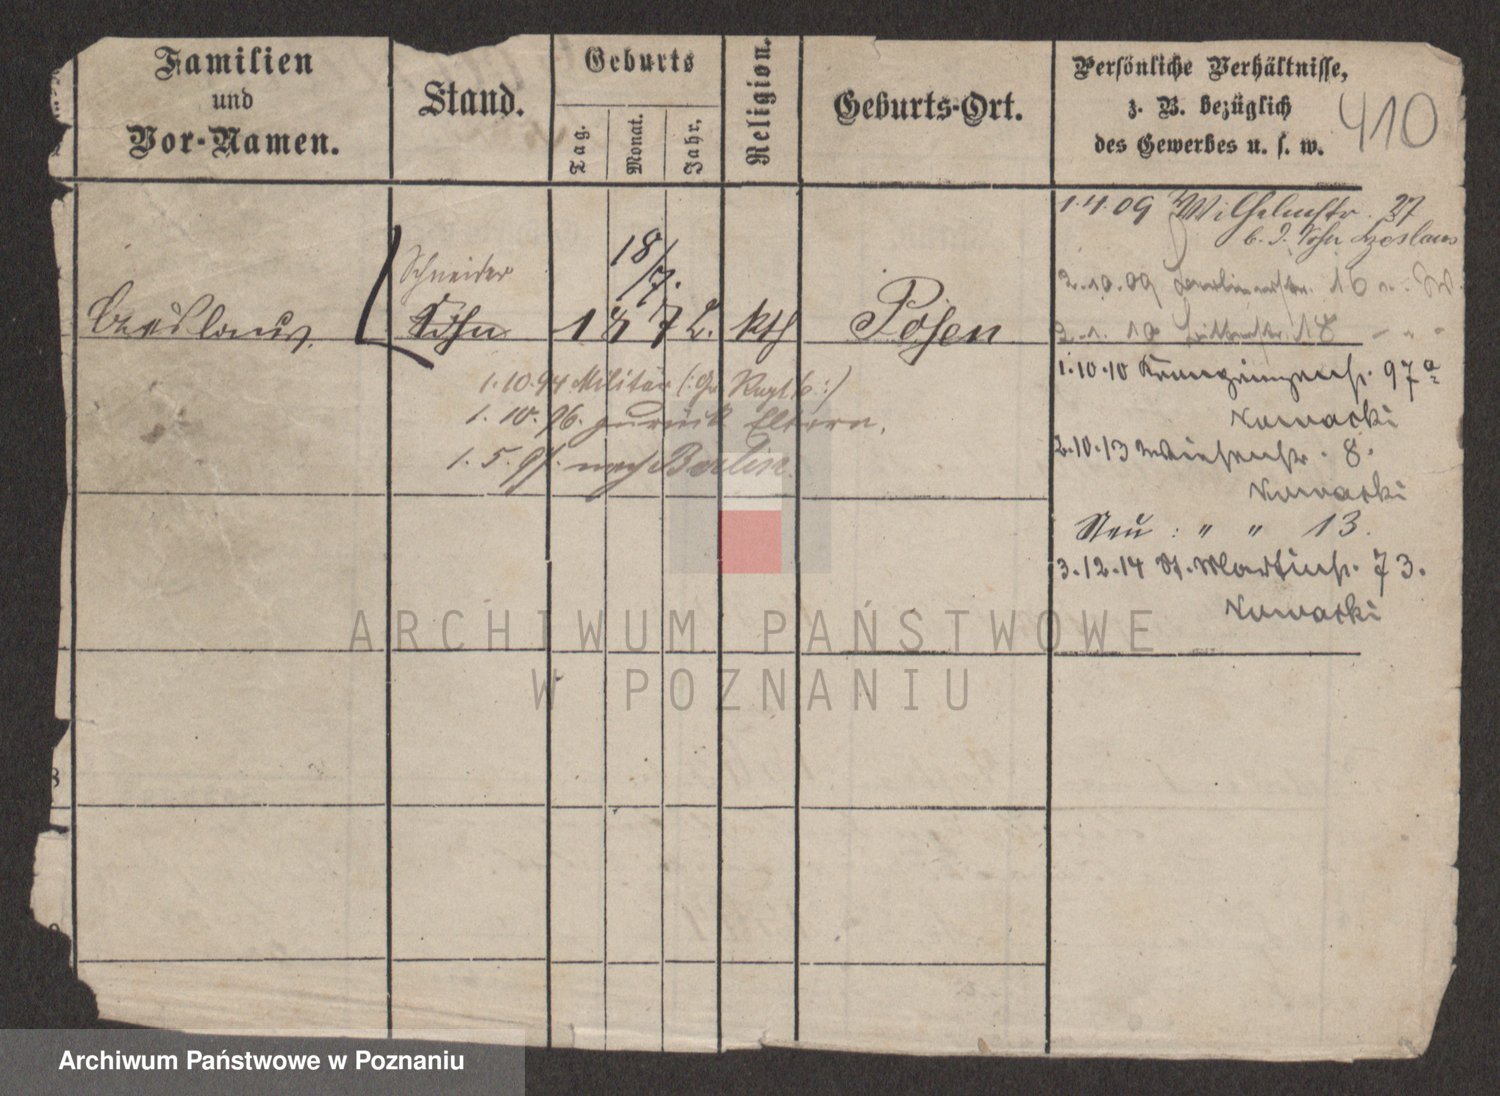 Familien
und
Vor-Namen.
Stand.
Geburts
Tag.
Monat.
Jahr.
Religion.
Geburts-Ort.
Persönliche Verhältnisse,
z. B. bezüglich
des Gewerbes u. s. w.
410
1.4.09 Wilhelmstr. 27
b. Czeslaus
Schneider
18/7.
2.10.09 16
Sohn 1872. kth Posen
3.1.10 18 - " "
1.10.94 Militär
1.10.10 97a
1.10.96. zurück Eltern.
Nowacki
1.5.97. nach Berlin.
2.10.13 Wiesenstr. 8.
Nowacki
Neu : " " 13.
3.12.14 St. Martinstr. 73.
Nowacki
ARCHIWUM PAŃSTWOWE
W POZNANIU
Archiwum Państwowe w Poznaniu